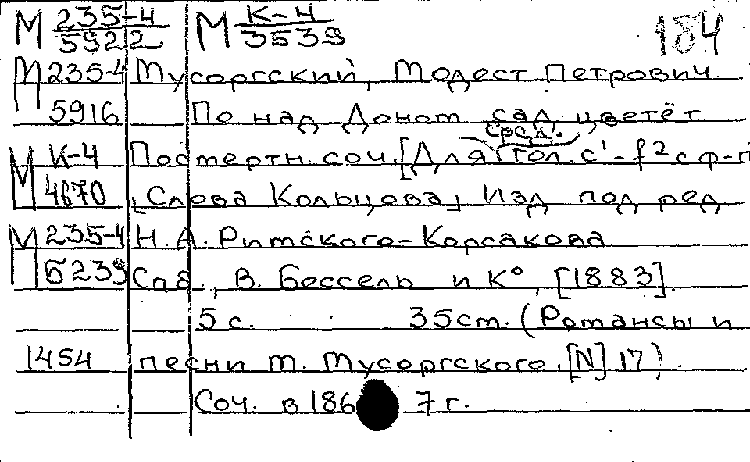 М 235-4/5922 М К-4/3539 184
М 235-4/5916 Мусоргский, Модест Петрович
По над Доном сад цветёт
М К-4/4670 Посмертн. соч. [Для сред. гол. c'-f² с ф-п
[Слова Кольцова] Изд под ред
М 235-4/5239 Н.А. Римского-Корсакова
Спб., В. Бессель и К°, [1883].
5 с. 35 см. (Романсы и
1454 песни М. Мусоргского. [N] 17)
Соч. в 186 7 г.